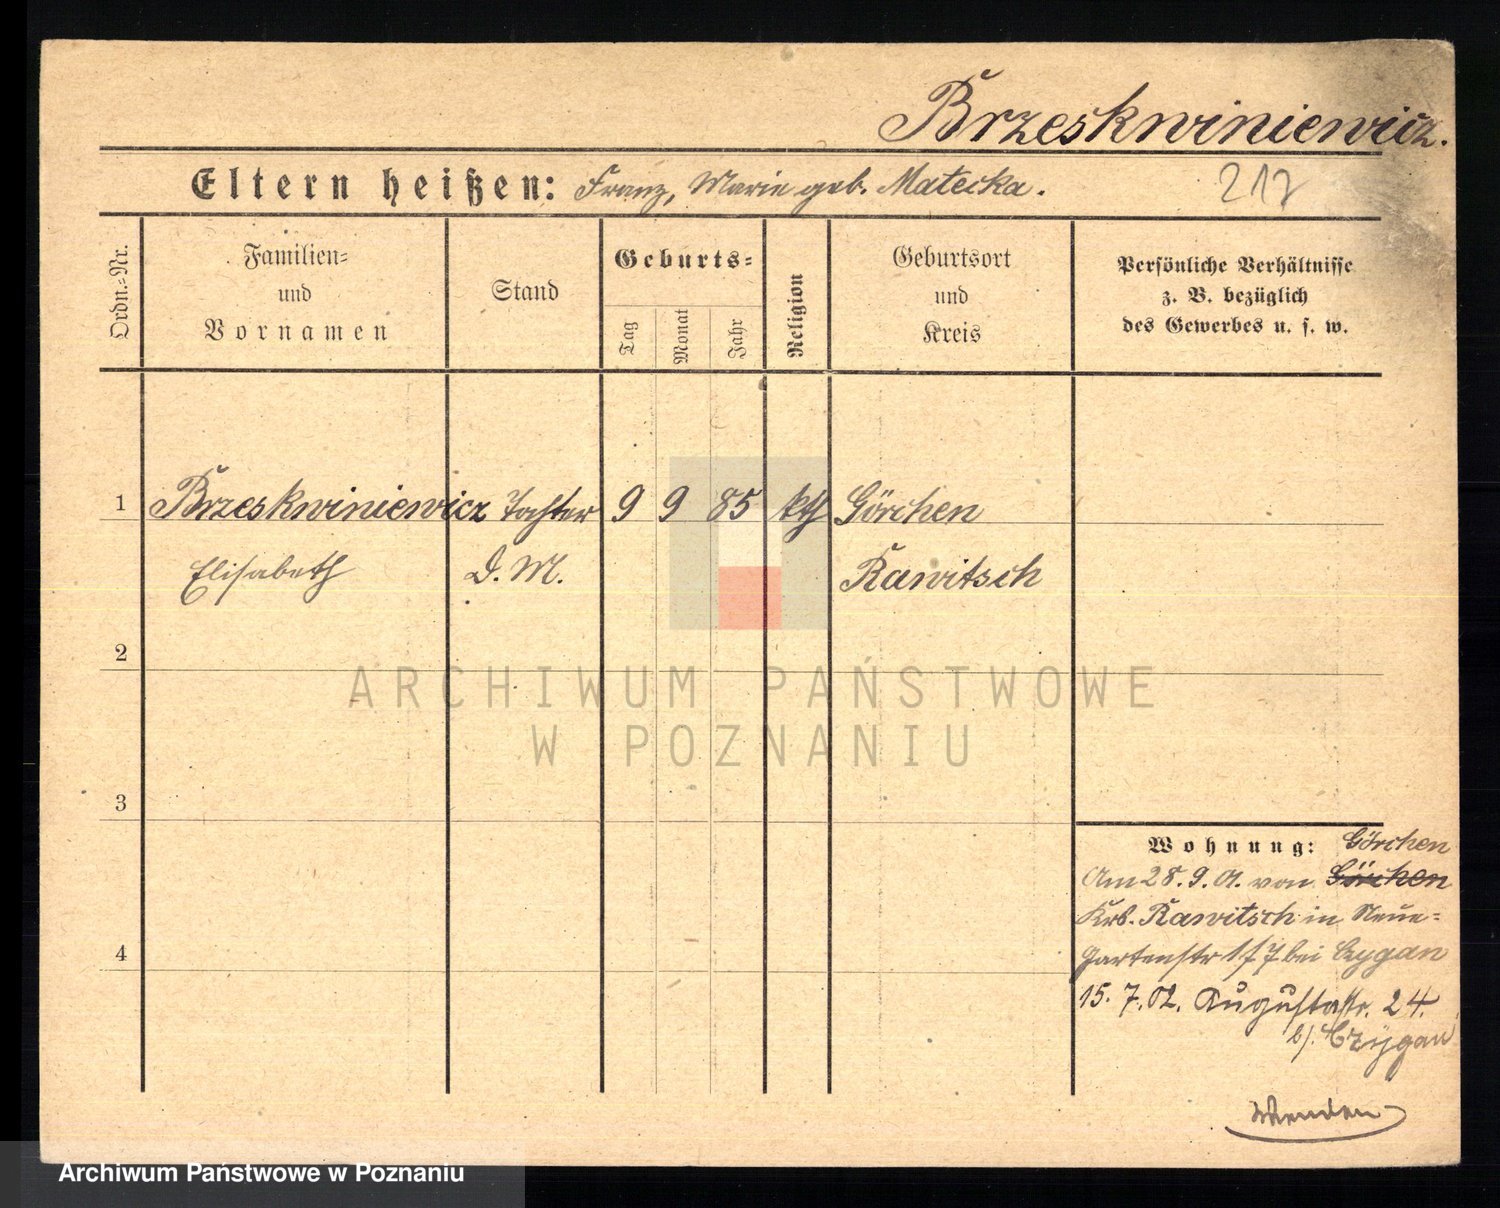 Brzeskwiniewicz.
Eltern heißen: Franz, Marie geb. Matecka.
217
Ordn.-Nr.
Familien-
und
Vornamen
Stand
Geburts-
Tag
Monat
Jahr
Religion
Geburtsort
und
Kreis
Persönliche Verhältnisse
z. B. bezüglich
des Gewerbes u. s. w.
1 Brzeskwiniewicz Tochter 9 9 85 kth Görchen
Elisabeth D. M. Rawitsch
2
ARCHIWUM PAŃSTWOWE
W POZNANIU
3
Wohnung: Görchen
Am 28. 9. 01. von Görchen
Krs. Rawitsch in Neue-
4
Gartenstr 1/7 bei Czygan
15. 7. 02. Augustastr. 24.
b/. Czygan
Wenden
Archiwum Państwowe w Poznaniu